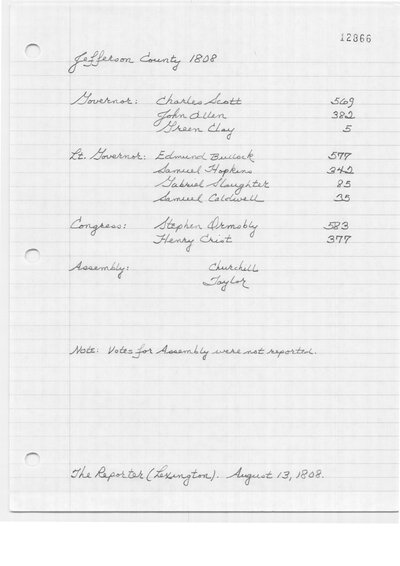 12866
Jefferson County 1808
Governor: Charles Scott 569
John Allen 382
Green Clay 5
Lt. Governor: Edmund Bullock 577
Samuel Hopkins 342
Gabriel Slaughter 85
Samuel Caldwell 35
Congress: Stephen Ormsbly 583
Henry Crist 377
Assembly: Churchill
Taylor
Note: Votes for Assembly were not reported.
The Reporter (Lexington). August 13, 1808.